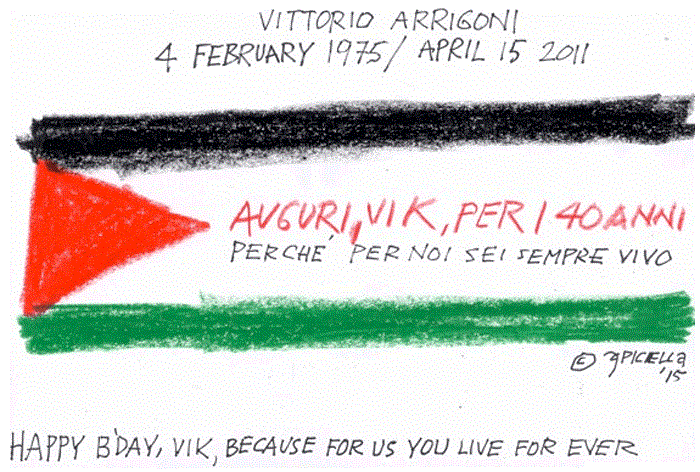 VITTORIO ARRIGONI
4 FEBRUARY 1975/ APRIL 15 2011
AUGURI, VIK, PER I 40 ANNI
PERCHE' PER NOI SEI SEMPRE VIVO
©
'15
HAPPY B'DAY, VIK, BECAUSE FOR US YOU LIVE FOR EVER